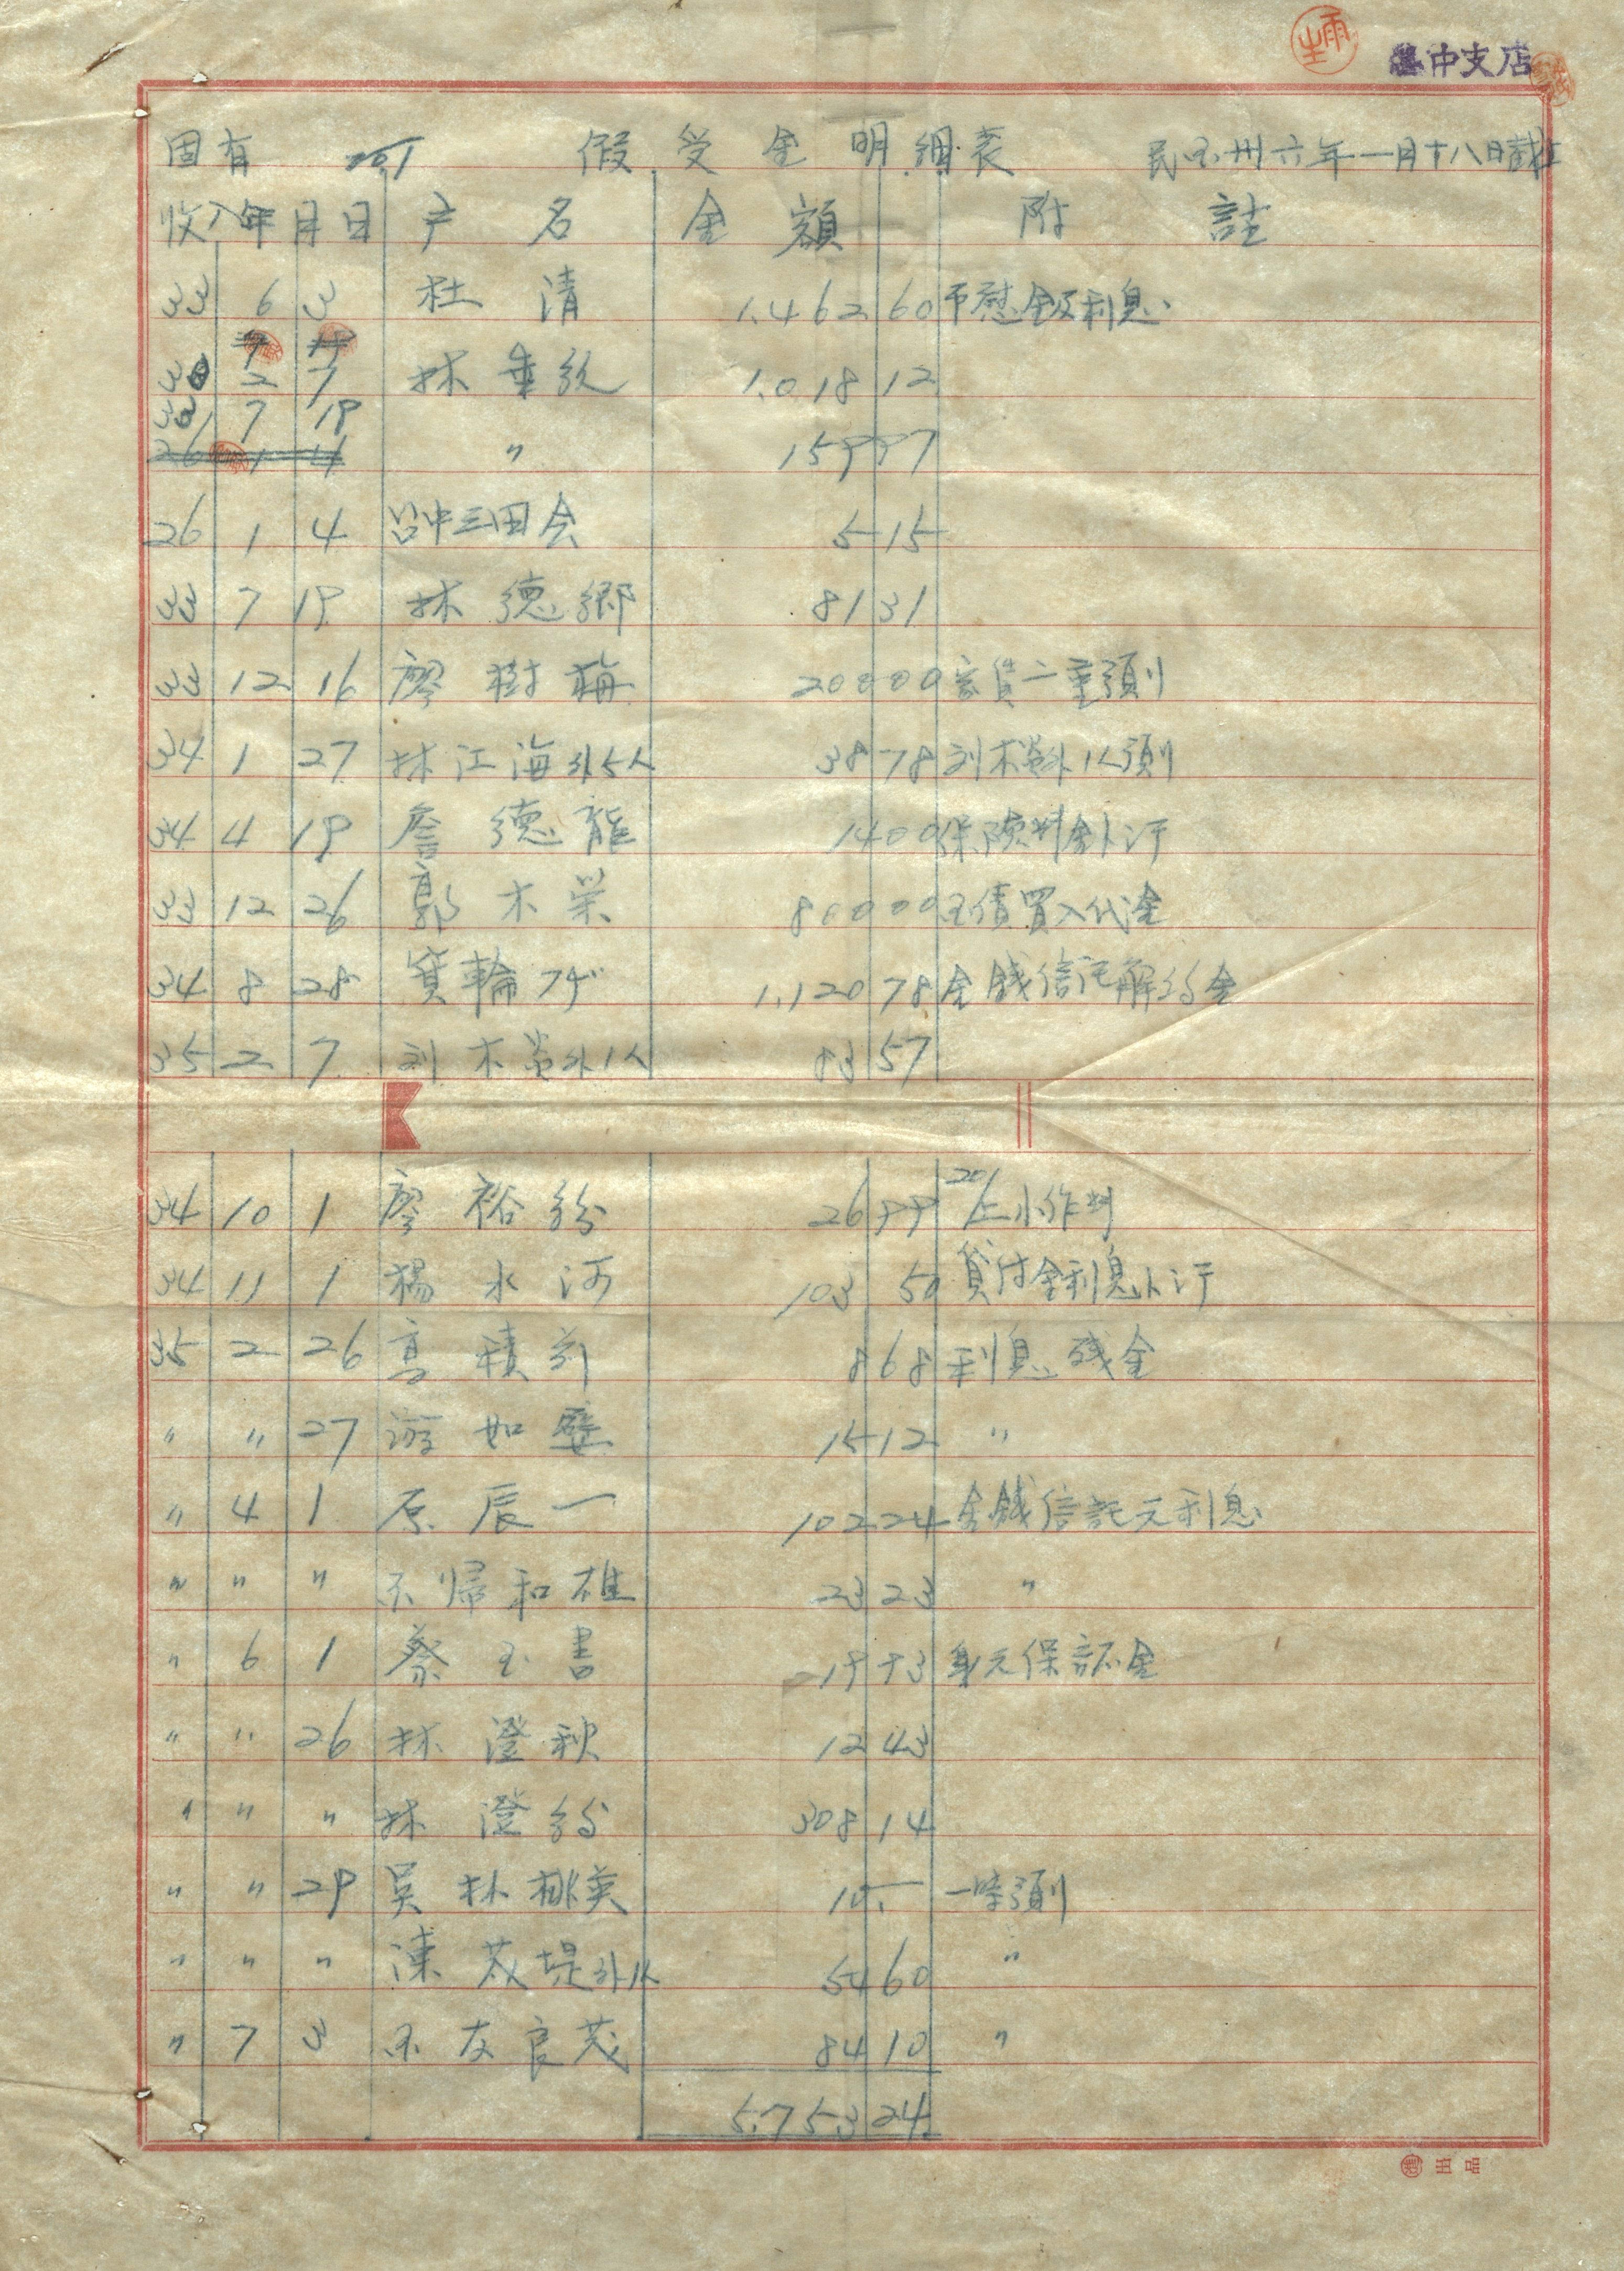 臺中支店
固有 假受金明細表 民国卅六年一月十八日截止
收入年月日 戸名 金額 附註
33 6 3 杜清 1.462 60 弔慰金及利息
30 2 7 林垂 1.018 12
7 19
26 1 4 〃 159 97
26 1 4 台中三田会 5 15
33 7 19 林德鄉 81 31
33 12 16 廖樹梅 200 00 家賃二重預リ
34 1 27 林江海外5人 38 78 刘木 外1人預リ
34 4 19 詹德龍 14 00 保険料
33 12 26 郭木栄 800 00 国債買入代金
34 8 28 箕輪フヂ 1.120 78 金錢信託解約金
35 2 7 刘木 外1人 83 57
34 10 1 廖裕紛 26 99 小作料
34 11 1 楊水河 103 50 貸付金利息
35 2 26 高積前 8 68 利息残金
〃 〃 27 游如 15 12 〃
〃 4 1 原辰一 102 24 金錢信託元利息
〃 〃 〃 不帰和雄 23 23 〃
〃 6 1 蔡玉書 19 93 身元保証金
〃 〃 26 林澄秋 12 43
〃 〃 〃 林澄 308 14
〃 〃 29 吳林桃英 10. — 一時預リ
〃 〃 〃 陳茂堤外1人 54 60 〃
〃 7 3 国友良茂 84 10 〃
5.753 24
出品